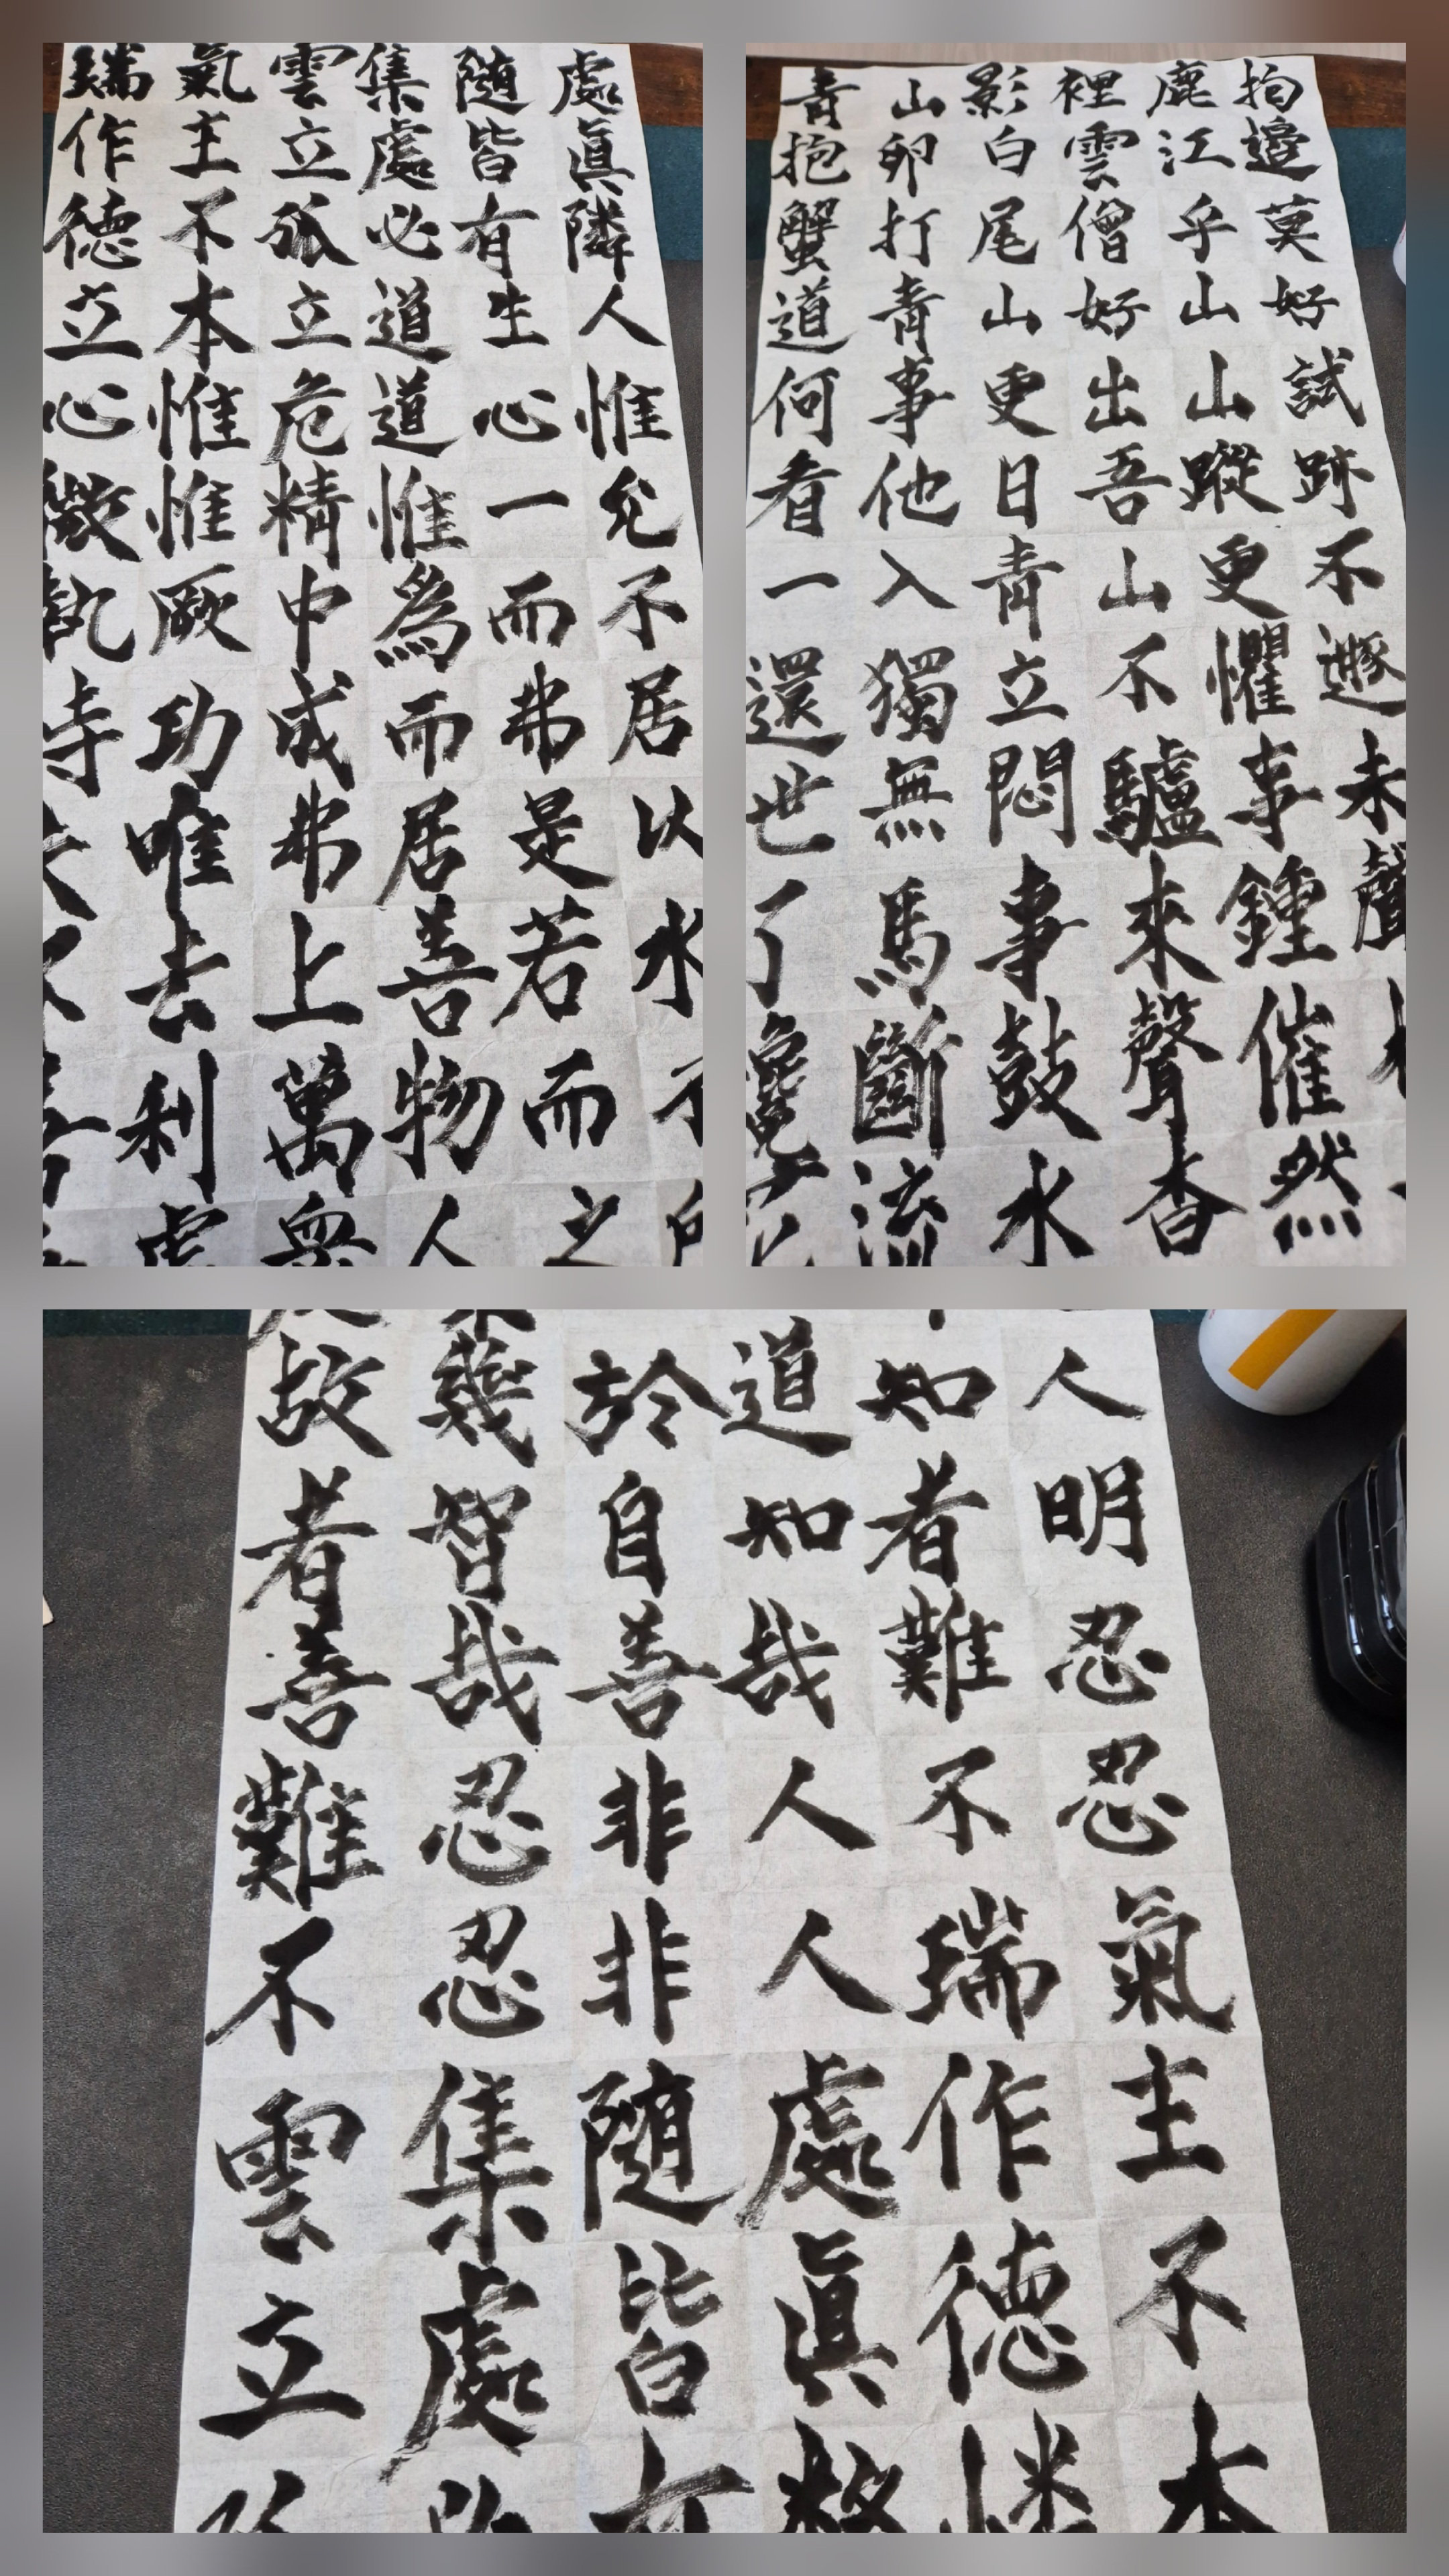 瑞氣雲集隨處
作主立處皆眞
德不孤必有隣
立本立道生人
心惟危道心惟
微惟精惟一允
執厥中爲而不
寺功成而弗居
唯弗居是以
去上善若水
利萬物而
人之
青山影裡鹿抱
抱卵白雲江邊
蟹打尾僧乎莫
道青山好山好
何事更出山試
看他日吾蹤跡
一入青山更不
還獨立不懼遯
世無悶驢事未
了馬事來鍾聲
鼓聲催
斷
流水杳然
故幾於道知人
者智自知者明
善哉善哉難忍
難忍非人不忍
不忍非人瑞氣
雲集隨處作主
立處皆眞德不
本